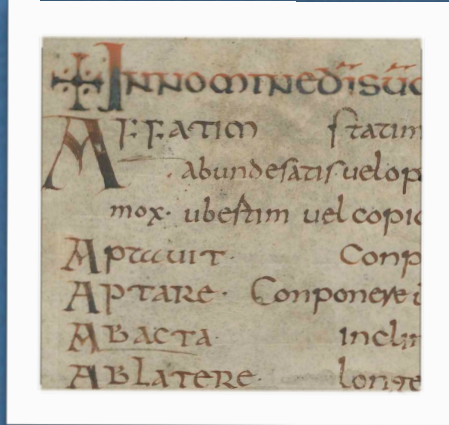 ✠ INNOMINEDĪSŪC
AFFATIM statim
abundesatisuelop
mox· ubestim uel copio
Aptauit· Conp
APTARE· Conponere
ABACTA inclin
ABLATERE· longe